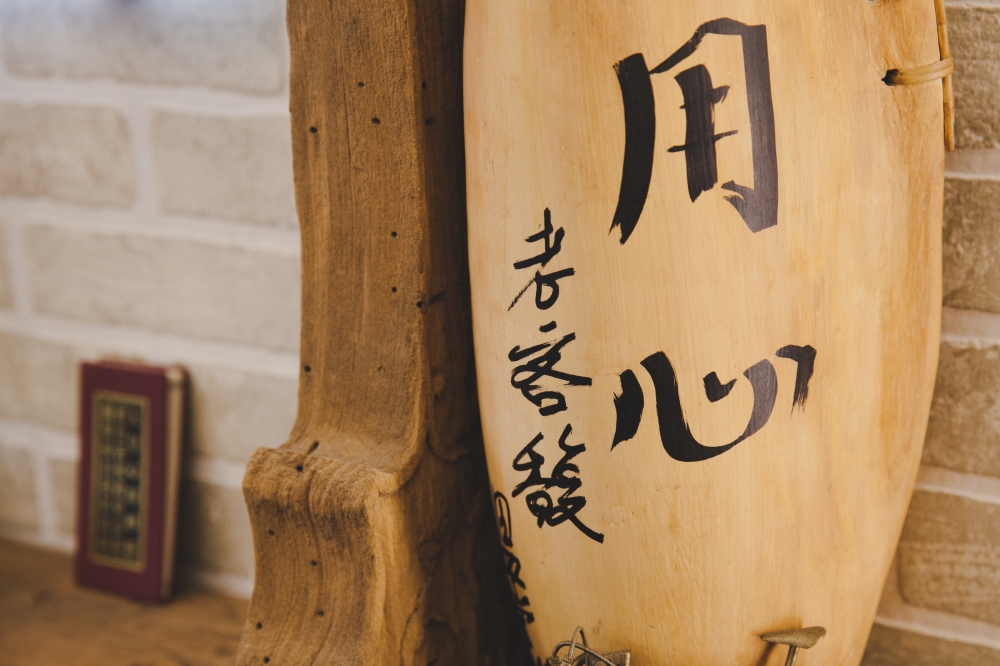 用心
老客發